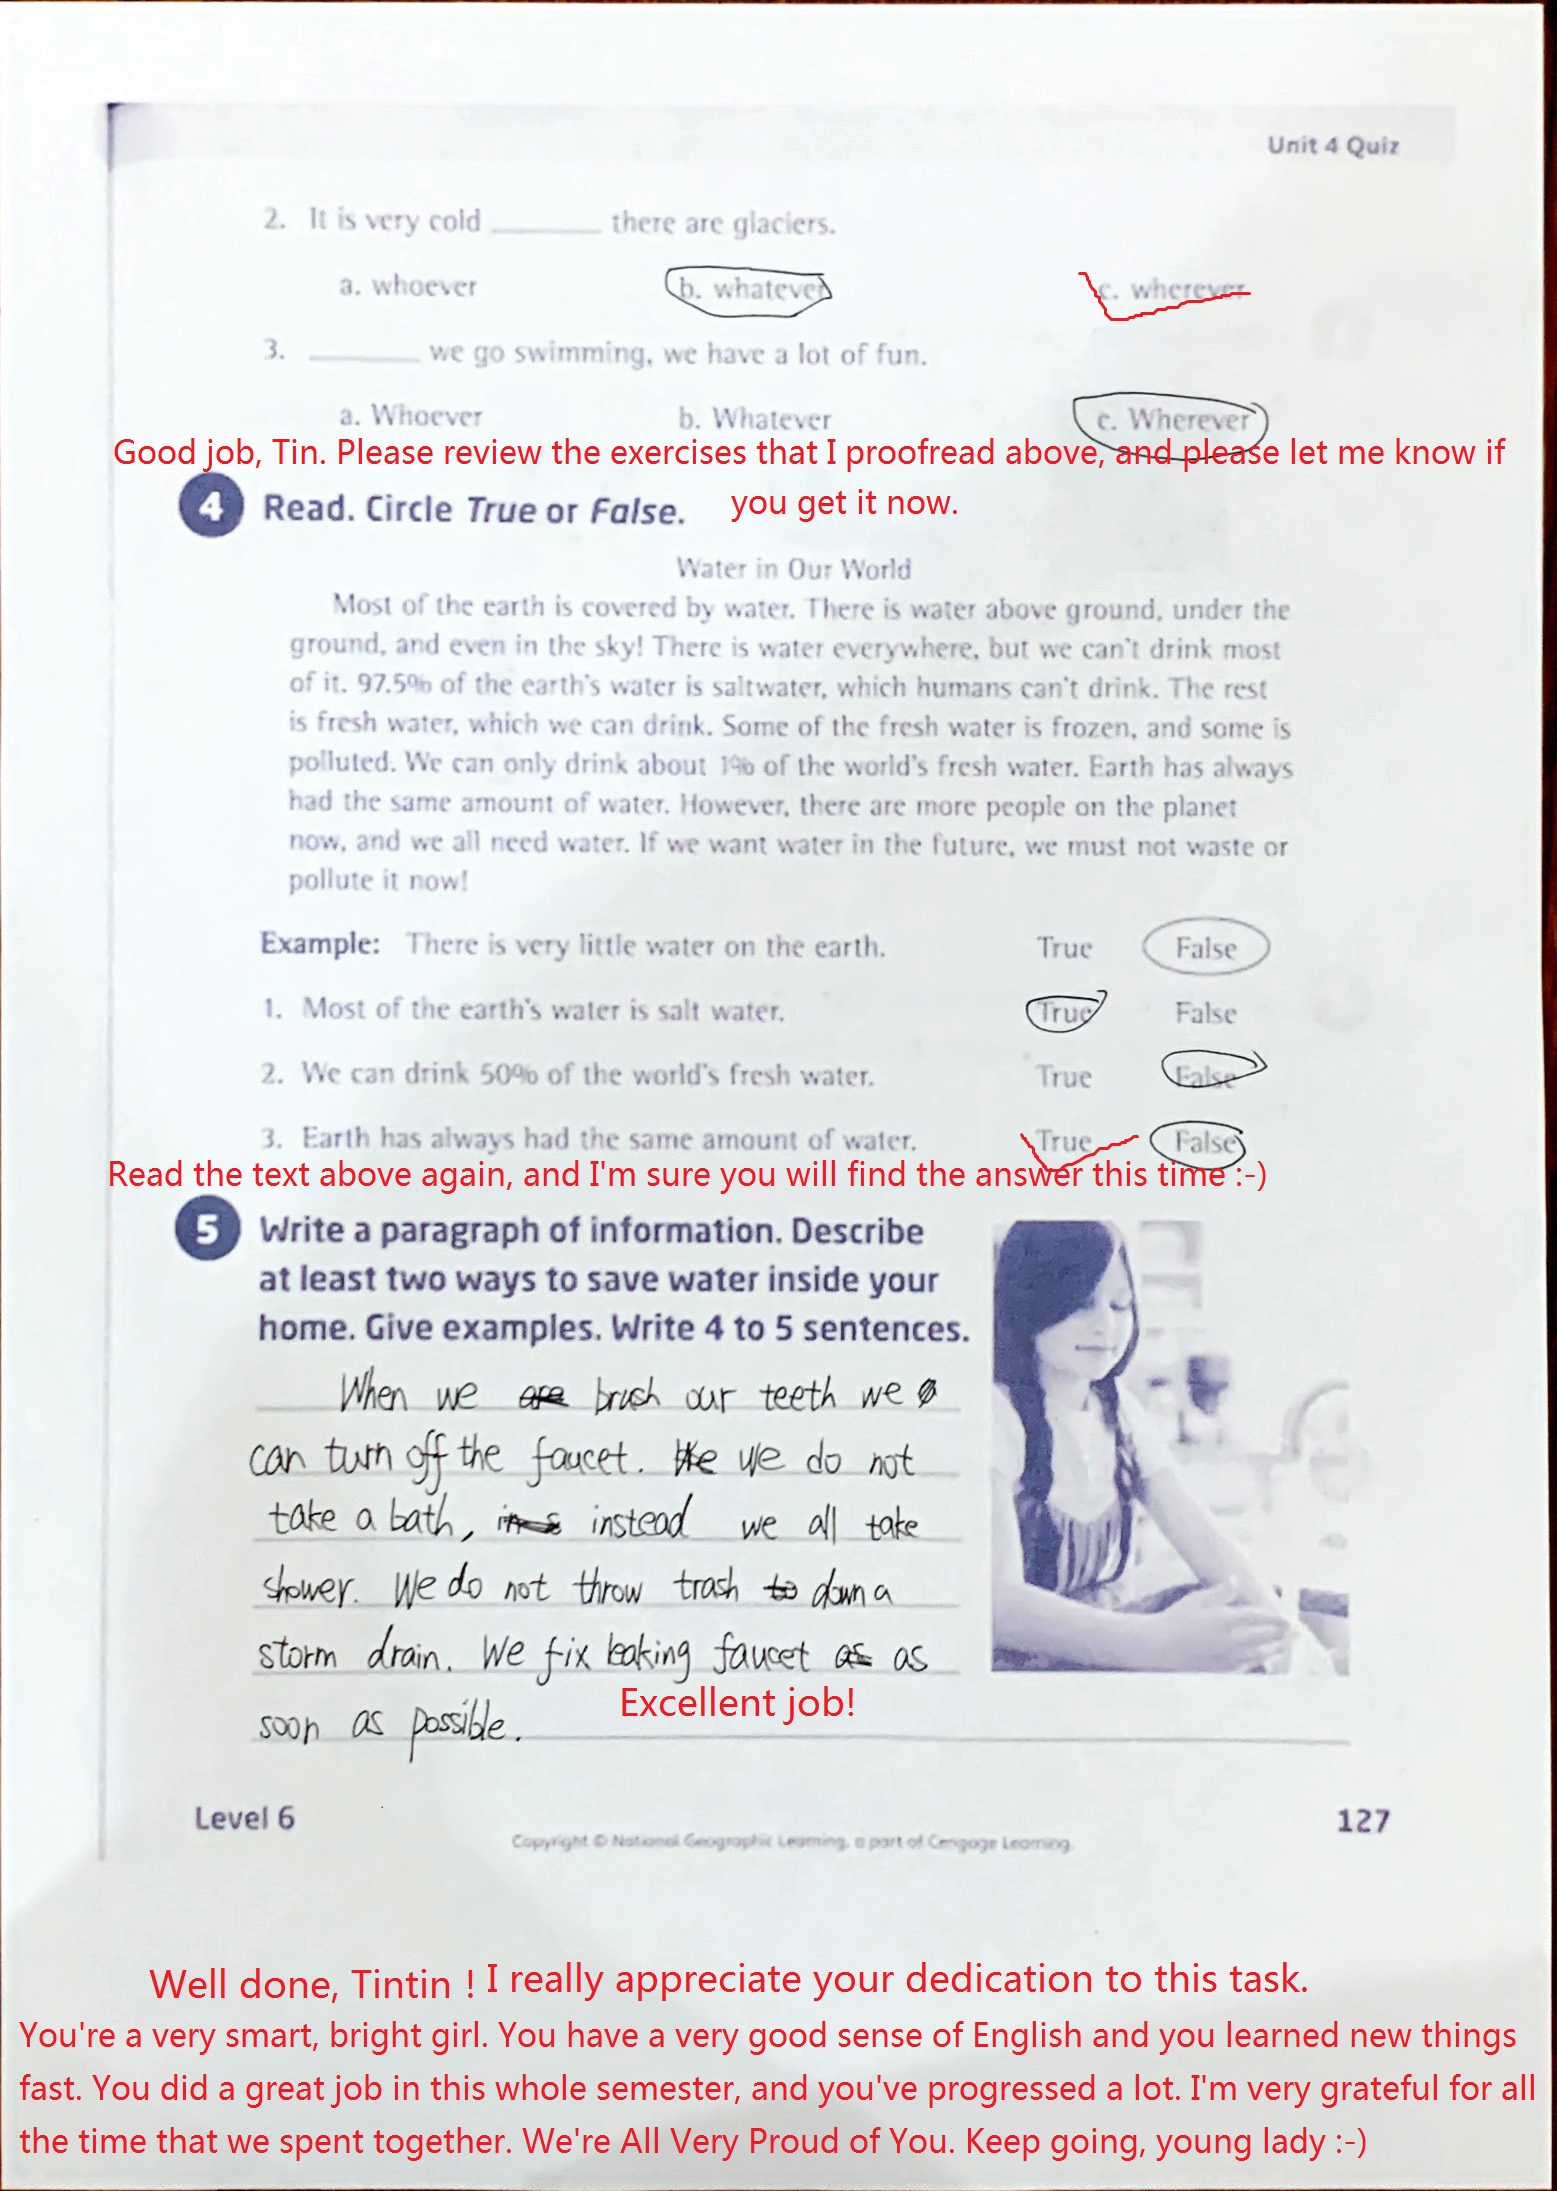 Unit 4 Quiz
2. It is very cold ________ there are glaciers.
a. whoever b. whatever c. wherever
3. ________ we go swimming, we have a lot of fun.
a. Whoever b. Whatever c. Wherever
Good job, Tin. Please review the exercises that I proofread above, and please let me know if
you get it now.
4 Read. Circle True or False.
Water in Our World
Most of the earth is covered by water. There is water above ground, under the
ground, and even in the sky! There is water everywhere, but we can't drink most
of it. 97.5% of the earth's water is saltwater, which humans can't drink. The rest
is fresh water, which we can drink. Some of the fresh water is frozen, and some is
polluted. We can only drink about 1% of the world's fresh water. Earth has always
had the same amount of water. However, there are more people on the planet
now, and we all need water. If we want water in the future, we must not waste or
pollute it now!
Example: There is very little water on the earth. True False
1. Most of the earth's water is salt water. True False
2. We can drink 50% of the world's fresh water. True False
3. Earth has always had the same amount of water. True False
Read the text above again, and I'm sure you will find the answer this time :-)
5 Write a paragraph of information. Describe
at least two ways to save water inside your
home. Give examples. Write 4 to 5 sentences.
When we are brush our teeth we
can turn off the faucet. We do not
take a bath, instead we all take
shower. We do not throw trash to down a
storm drain. We fix leaking faucet as as
soon as possible.
Excellent job!
Level 6
127
Copyright © National Geographic Learning, a part of Cengage Learning.
Well done, Tintin ! I really appreciate your dedication to this task.
You're a very smart, bright girl. You have a very good sense of English and you learned new things
fast. You did a great job in this whole semester, and you've progressed a lot. I'm very grateful for all
the time that we spent together. We're All Very Proud of You. Keep going, young lady :-)